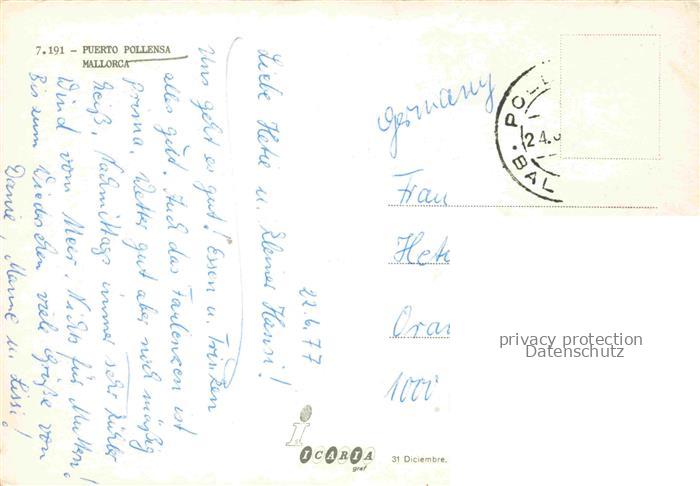 7.191 – PUERTO POLLENSA
MALLORCA
22.6.77
Liebe Hete u. kleiner Hansi!
Uns geht es gut! Essen u. Trinken
alles gut. Auch das Faulenzen ist
prima. Wetter gut aber noch mäßig
heiß. Nachmittags immer sehr kühler
Wind vom Meer. Nichts für Mutten!
Bis zum Wiedersehen viele Grüße von
Manne u. Lissi!
Germany
Frau
Hete
Oran
1000
POLL
24.
BAL
ICARIA
graf
31 Diciembre.
privacy protection
Datenschutz